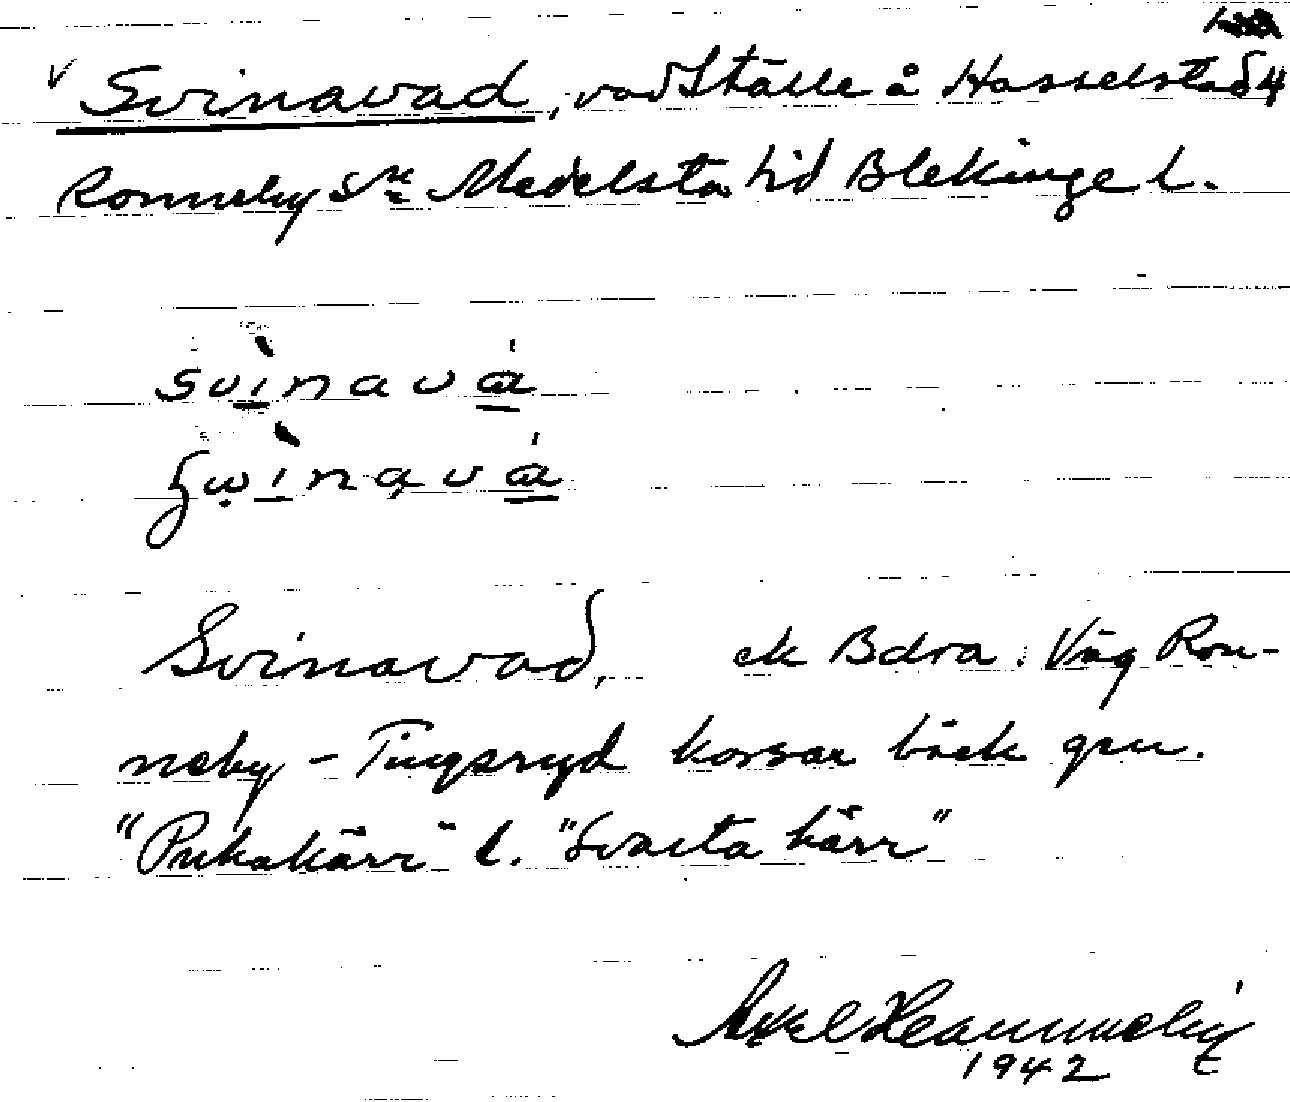 Svinavad, vadställe å Hasselstad 4
Ronneby sn Medelsta hd Blekinge l.
svìnavá
Svinavad, ek Bdra. Väg Ron-
neby - Tingsryd korsar bäck gen.
"Pukakärr" l. "Svarta kärr"
Axel
1942